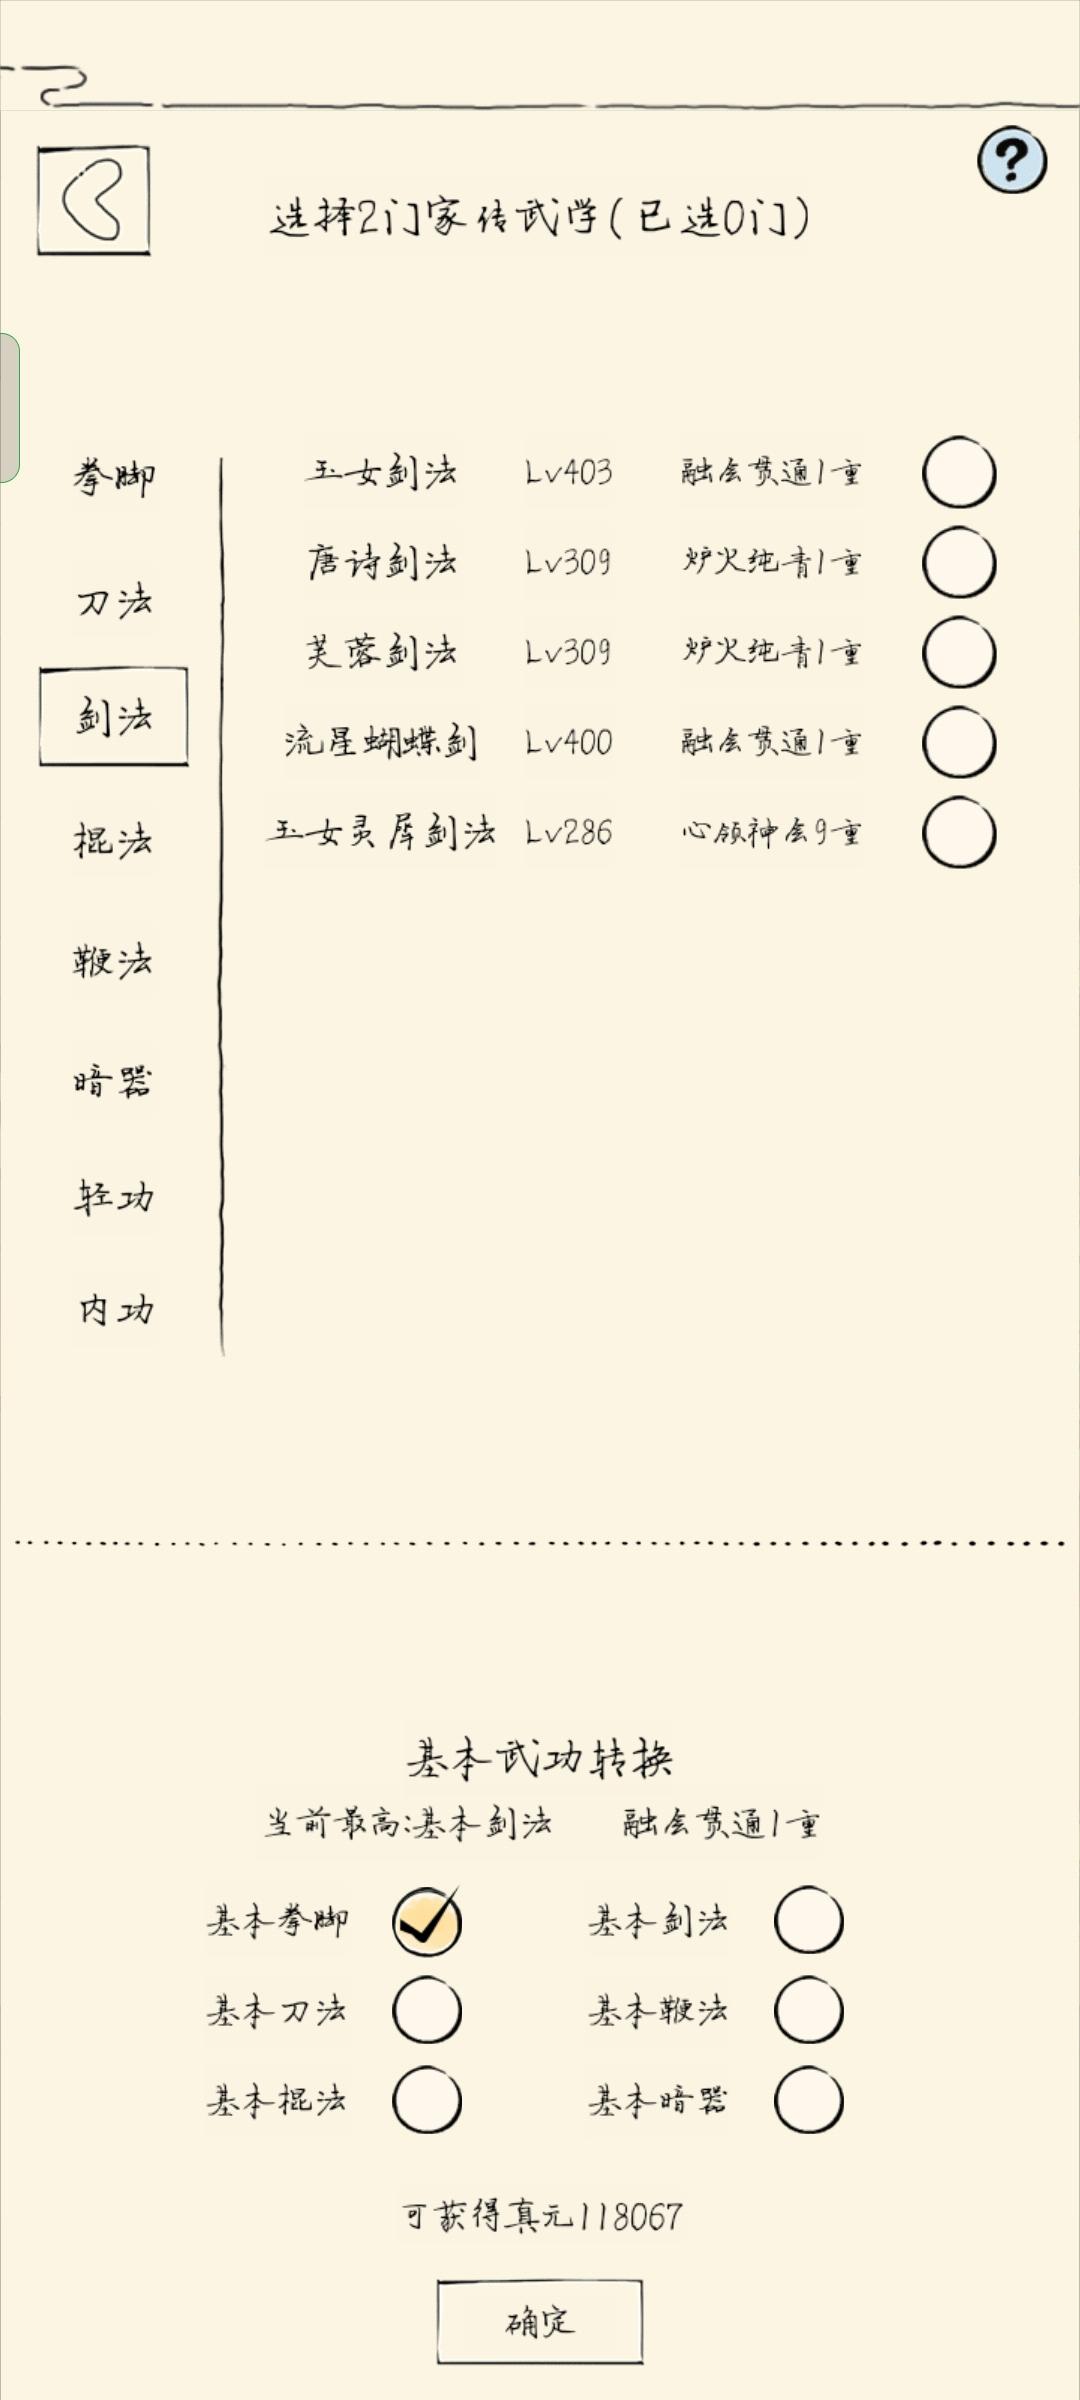 选择2门家传武学(已选0门)
拳脚
刀法
剑法
棍法
鞭法
暗器
轻功
内功
玉女剑法 Lv403 融会贯通1重
唐诗剑法 Lv309 炉火纯青1重
芙蓉剑法 Lv309 炉火纯青1重
流星蝴蝶剑 Lv400 融会贯通1重
玉女灵犀剑法 Lv286 心领神会9重
基本武功转换
当前最高:基本剑法 融会贯通1重
基本拳脚 基本剑法
基本刀法 基本鞭法
基本棍法 基本暗器
可获得真元118067
确定